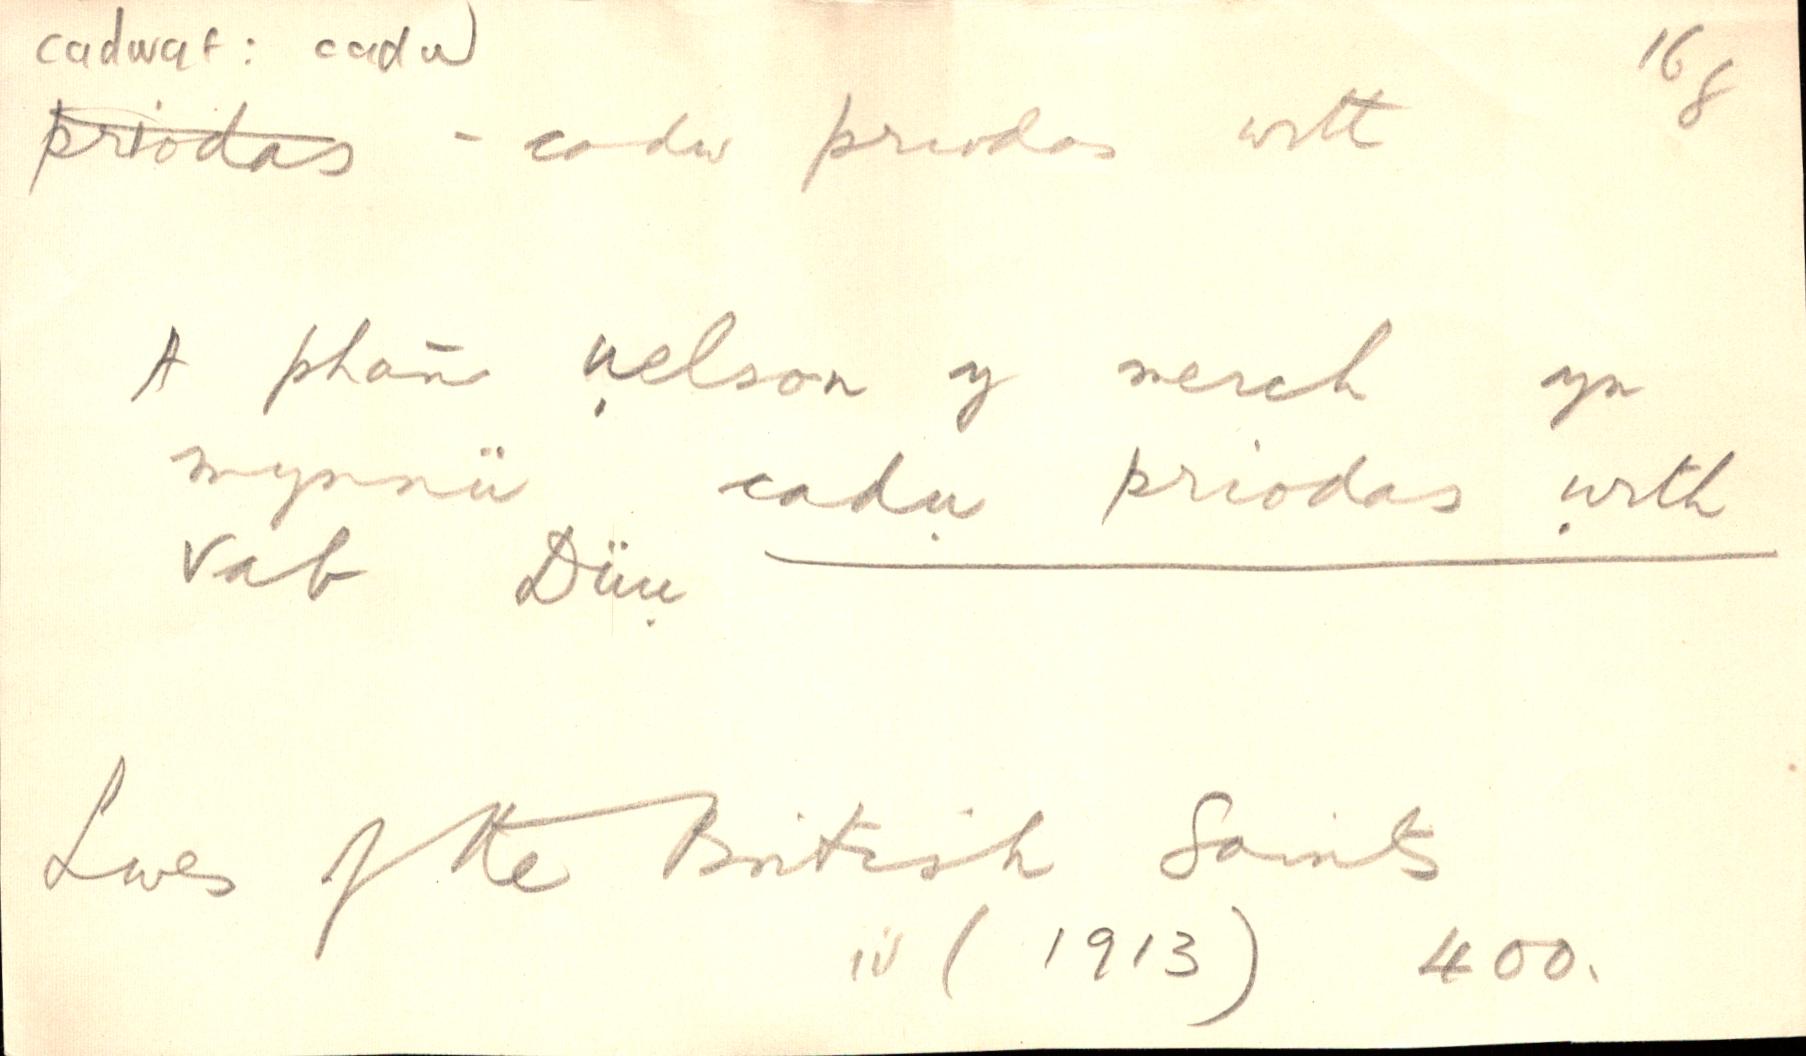 cadwaf: cadw 16/8
priodas - cadw priodas wrth
A phan̄ ṷelson y merch yn
mynnü cadẉ priodas ẉrth
Vab Düẉ
Lives of the British Saints
iv (1913) 400.